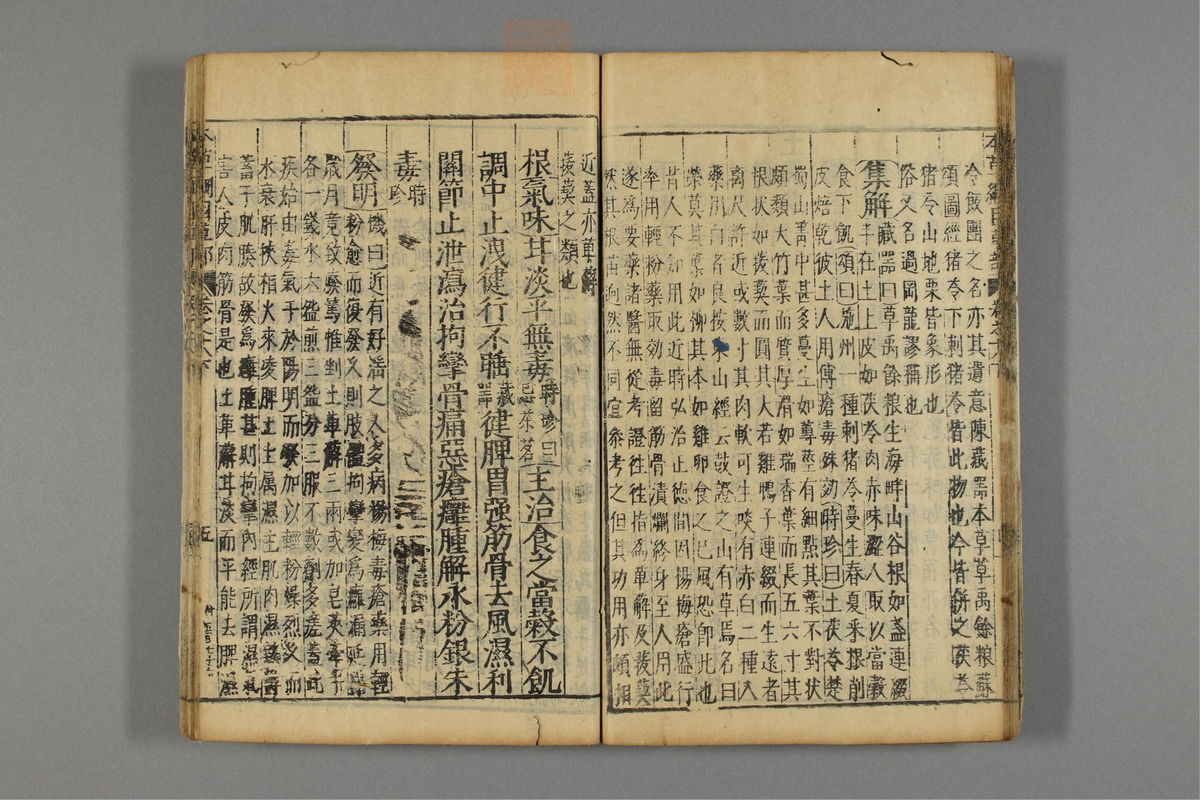 冷飯團之名亦其遺意陳藏噐本草草禹餘粮蘇
頌圖經猪苓下刺猪苓皆此物也今皆併之茯苓
猪苓山地栗皆象形也
俗又名過岡龍謬稱也
集解藏噐曰草禹餘粮生海畔山谷根如盞連綴
半在土上皮如茯苓肉赤味澀人取以當穀
食下飢頌曰施州一種刺猪苓蔓生春夏采根削
皮焙乾彼土人用傳瘡毒殊効時珍曰土茯苓楚
蜀山箐中甚多蔓生如蓴莖有細點其葉不對狀
頗類大竹葉而質厚滑如瑞香葉而長五六寸其
根狀如菝葜而圓其大若雞鴨子連綴而生遠者
离尺許近或數寸其肉軟可生啖有赤白二種入
藥用白者良按東山經云鼓證之山有草焉名曰
榮莫其葉如柳其本如雞卵食之已風恐即此也
昔人不知用此近時弘治正德間因楊梅瘡盛行
率用輕粉藥取効毒留筋骨潰爛終身至人用此
遂爲要藥諸醫無從考證往往指爲萆解及菝葜
然其根苗迥然不同宜叅考之但其功用亦頗相
近蓋亦萆薢
菝葜之類也
根氣味甘淡平無毒時珍曰忌茶茗主治食之當穀不飢
調中止洩健行不睡藏噐健脾胃强筋骨去風濕利
關節止泄瀉治拘攣骨痛惡瘡癰腫解永粉銀朱
毒時珍
發明機曰近有好淫之人多病楊梅毒瘡藥用輕
粉愈而復發久則肢體拘攣變爲癰漏延綿
歲月竟致癈篤惟剉土萆薢三兩或加皂莢牽牛
各一錢水六盌煎三盌分三服不數劑多瘥蓋此
疾始由毒氣干於陽明而發加以輕粉燥烈久而
水衰肝挾相火來凌脾土土属濕主肌肉濕熱鬱
蓄于肌腠故發爲癰腫甚則拘攣內經所謂濕氣
害人皮肉筋骨是也土萆薢甘淡而平能去脾濕
卷之十八下
五